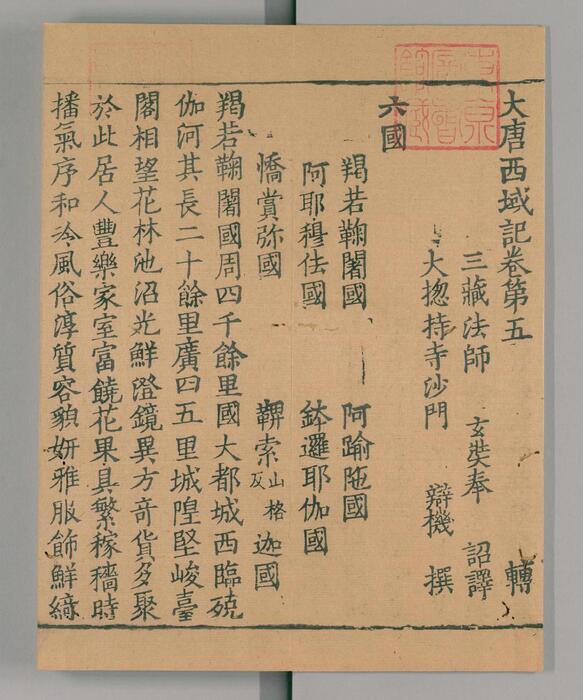 大唐西域記卷第五 轉
三藏法師 玄奘奉 詔譯
大揔持寺沙門 辯機 撰
六國
羯若鞠闍國 阿踰陁國
阿耶穆佉國 鉢邏耶伽國
憍賞弥國 鞞索山格反迦國
羯若鞠闍國周四千餘里國大都城西臨殑
伽河其長二十餘里廣四五里城隍堅峻臺
閣相望花林池沼光鮮澄鏡異方奇貨多聚
於此居人豐樂家室富饒花果具繁稼穡時
播氣序和冷風俗淳質容貌妍雅服飾鮮綺